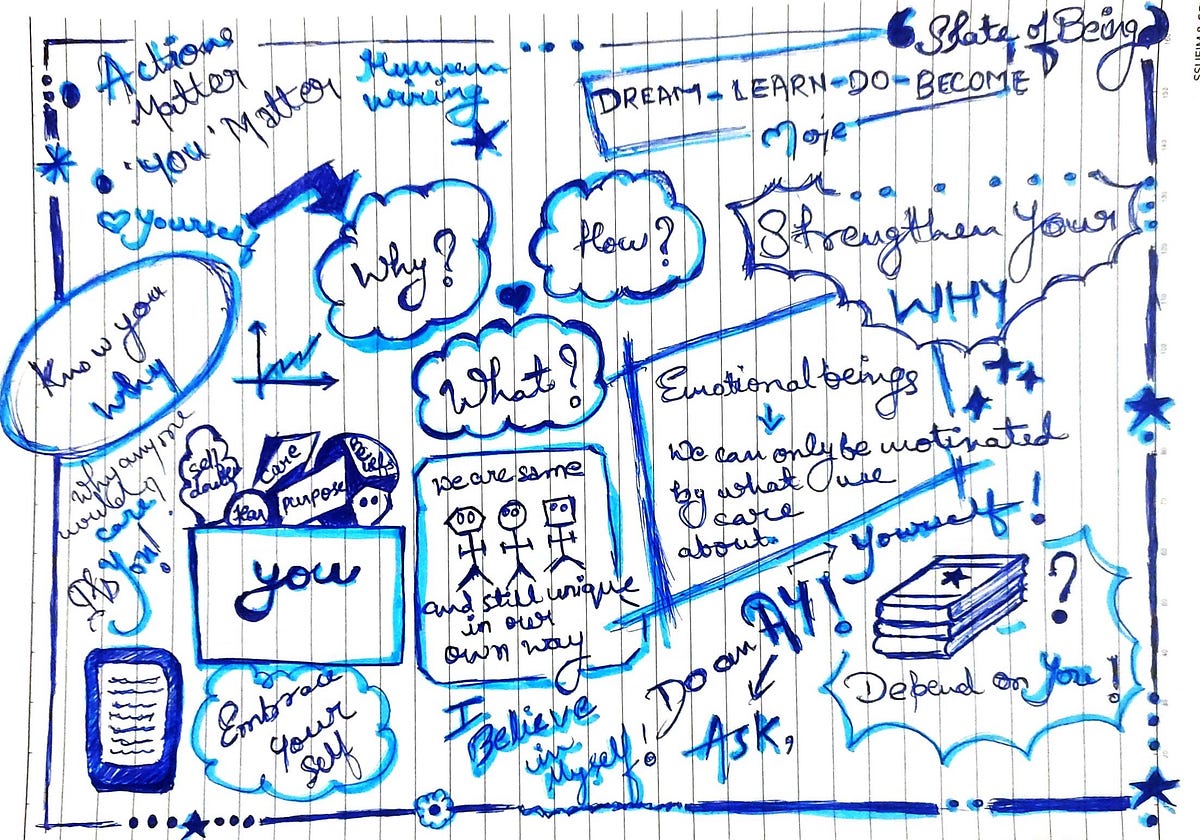 State of Being
Actions
Matter
'You' Matter
Human
wiring
DREAM-LEARN-DO-BECOME
More
♡ Yourself
Why?
How?
Strengthen Your
WHY
Know you
why
What?
Emotional beings
We can only be motivated
by what we
care
about
why anyone
would
care?
It's
You!
self
doubt
care
Beliefs
fear
purpose
you
we are same
and still unique
in our
own way
Do an AY!
Ask,
Yourself!
?
Depend on You!
Embrace
your
self
I
Believe
in
Myself!